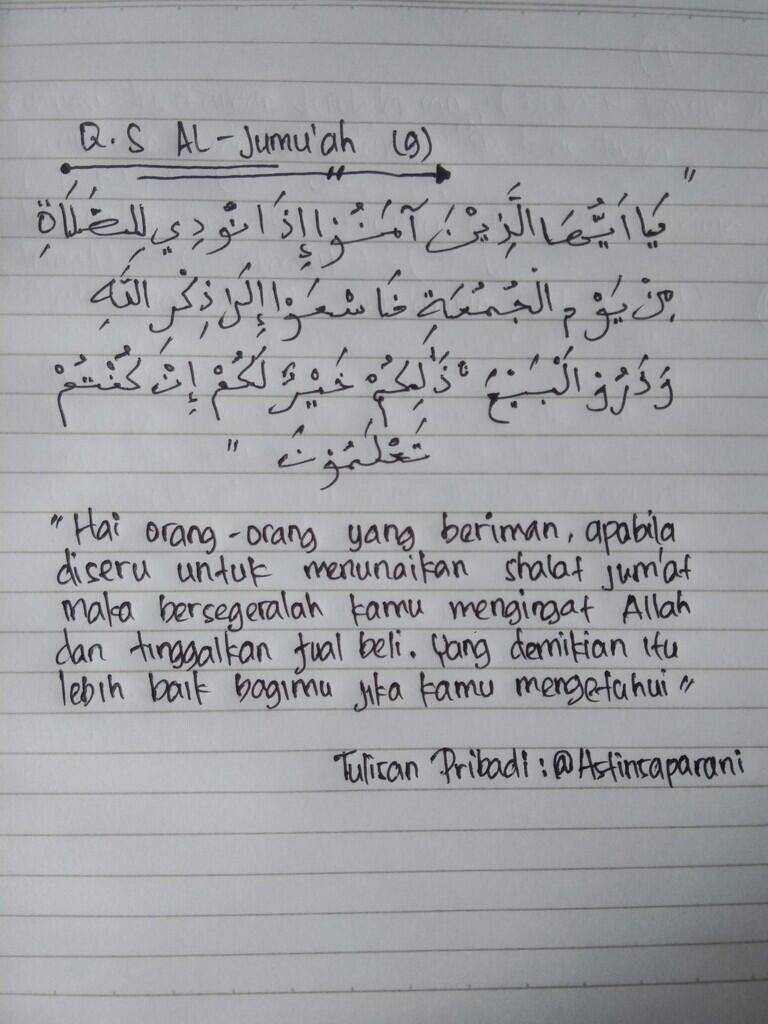 Q.S AL-Jumu'ah (9)
" يَا اَيُّهَا الَّذِيْنَ آمَنُوا إِذَا نُوْدِي لِلصَّلَاةِ
مِنْ يَوْمِ الْجُمُعَةِ فَاسْعَوْا إِلَى ذِكْرِ اللَّهِ
وَذَرُوْا الْبَيْعَ ذَٰلِكُمْ خَيْرٌ لَكُمْ إِنْ كُنْتُمْ
تَعْلَمُوْنَ "
"Hai orang-orang yang beriman, apabila
diseru untuk menunaikan shalat jum'at
maka bersegeralah kamu mengingat Allah
dan tinggalkan jual beli. Yang demikian itu
lebih baik bagimu jika kamu mengetahui"
Tulisan Pribadi : @Asfinsaparani